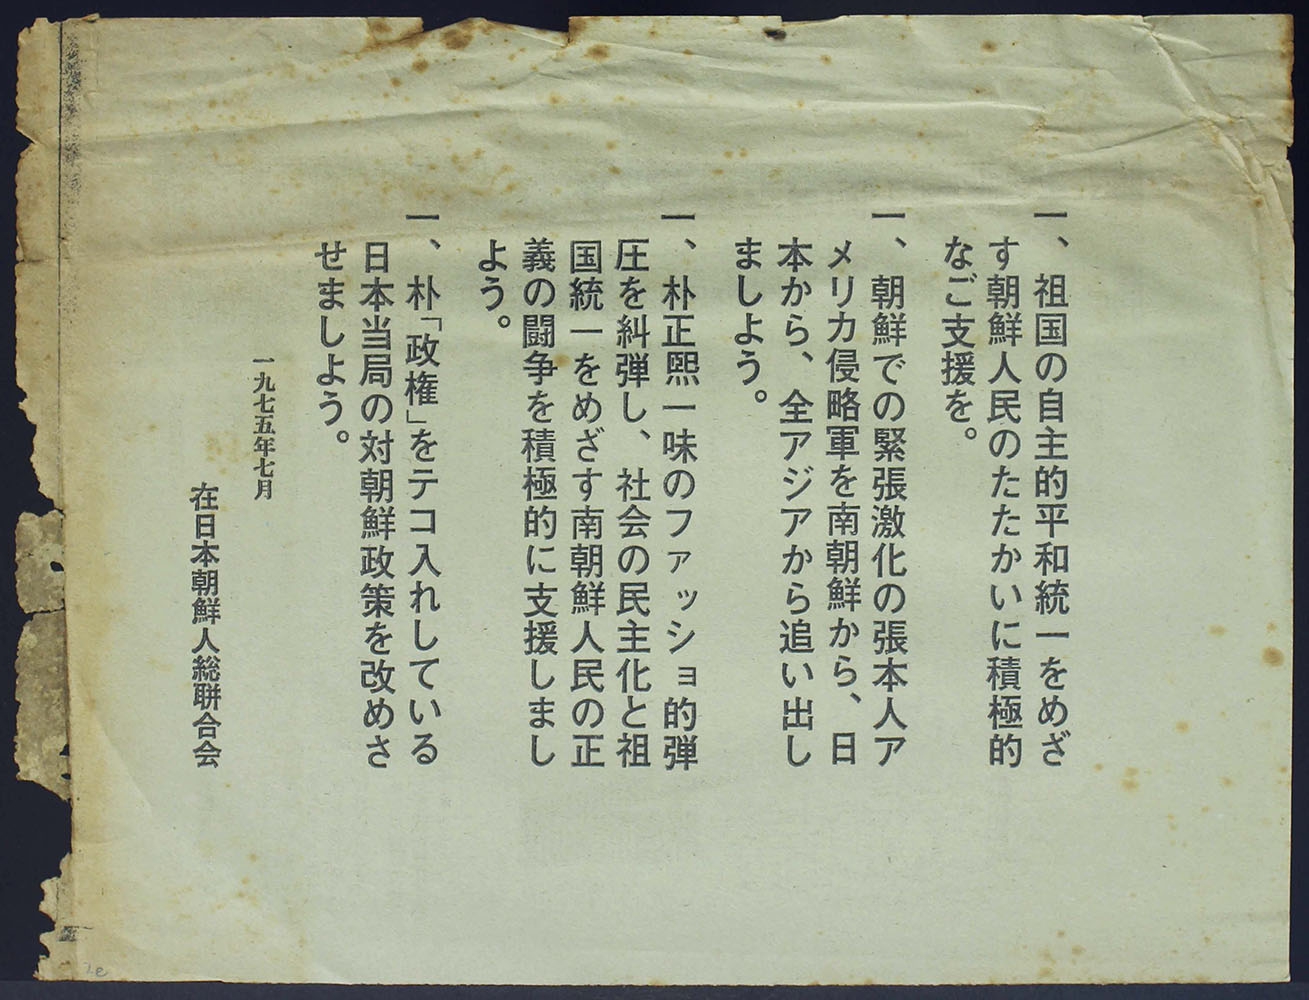 一、祖国の自主的平和統一をめざ
す朝鮮人民のたたかいに積極的
なご支援を。
一、朝鮮での緊張激化の張本人ア
メリカ侵略軍を南朝鮮から、日
本から、全アジアから追い出し
ましよう。
一、朴正熙一味のファッショ的弾
圧を糾弾し、社会の民主化と祖
国統一をめざす南朝鮮人民の正
義の闘争を積極的に支援しまし
よう。
一、朴「政権」をテコ入れしている
日本当局の対朝鮮政策を改めさ
せましよう。
一九七五年七月
在日本朝鮮人総聯合会